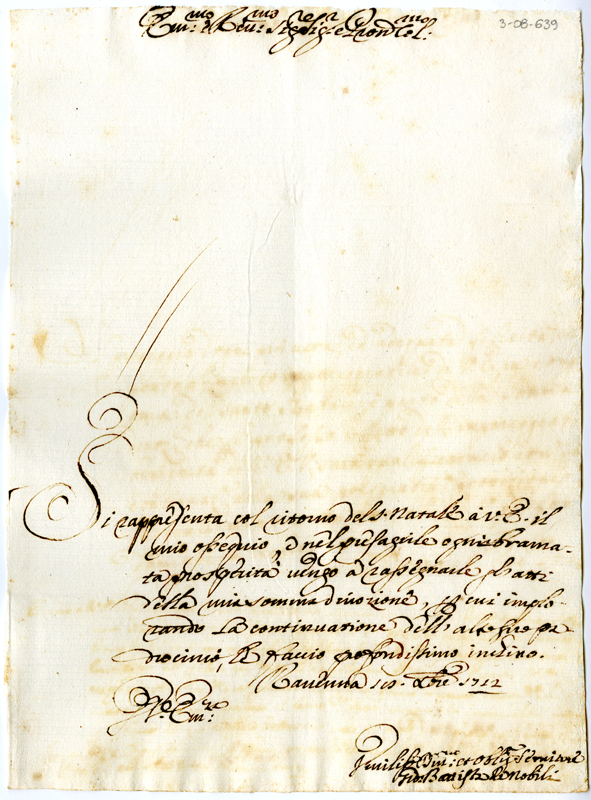 3-08-639
Em.mo e Reu.mo Sig.re Sig.r e Pron Col.mo
Si rappresenta col ritorno del S. Natale à V. E. il
mio ossequio, e nel presagirle ogni brama-
ta prosperità vengo à rassegnarle gl'atti
della mia somma divozione, con cui implo-
rando la continuatione dell'alto suo pa-
drocinio, le faccio profondissimo inchino.
Ravenna 1712
V. Em.za
Humiliss.mo Diu.mo et Obl.mo Seruitore
Gio: Battista De Nobili